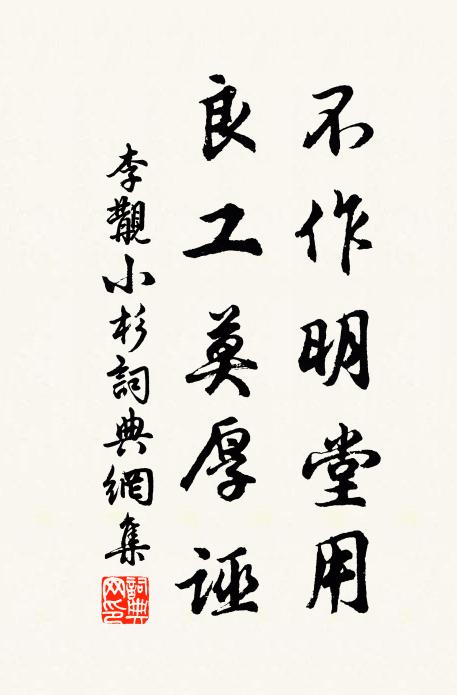 不作明堂用
良工莫厚誣
李觀小杉詞典網集
詞典網印